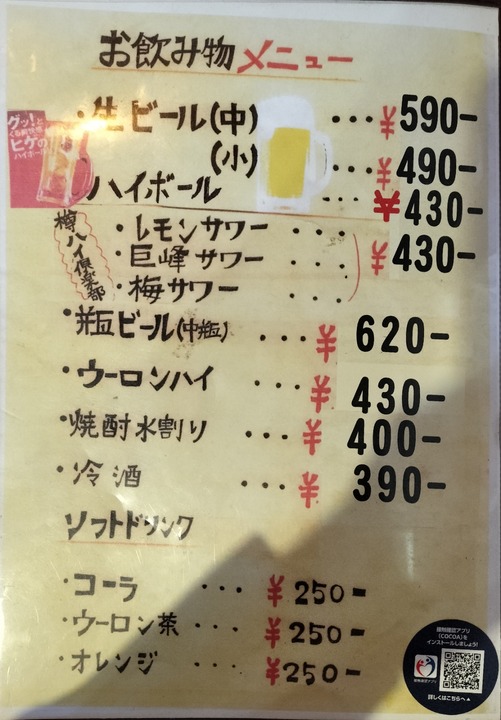 お飲み物メニュー
・生ビール(中) ・・・¥590-
(小) ・・・¥490-
ハイボール ・・・¥430-
樽ハイ倶楽部
・レモンサワー ・・・
・巨峰サワー ・・・ ¥430-
・梅サワー ・・・
・瓶ビール(中瓶) ・・・¥620-
・ウーロンハイ ・・・¥430-
・焼酎水割り ・・・¥400-
・冷酒 ・・・¥390-
ソフトドリンク
・コーラ ・・・¥250-
・ウーロン茶 ・・・¥250-
・オレンジ ・・・¥250-
グッ!と
ヒゲの
ハイボール
接触確認アプリ
(COCOA)を
インストールしましょう!
接触確認アプリ
詳しくはこちらへ▲